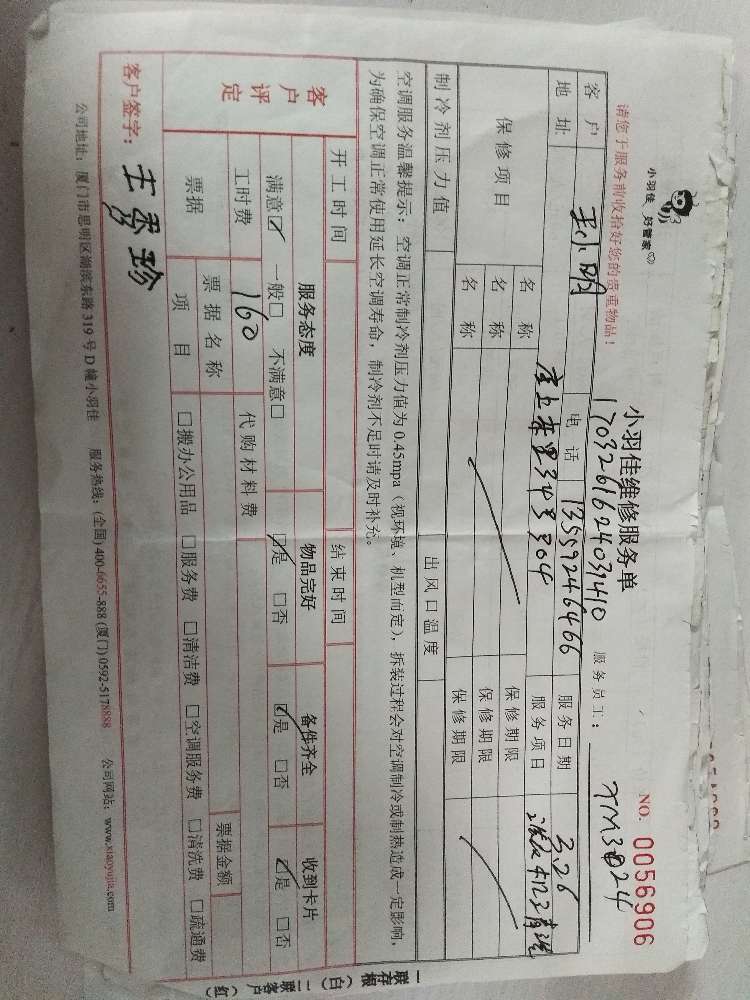 小羽佳 好管家
小羽佳维修服务单
NO. 0056906
请您于服务前收拾好您的贵重物品！
1703261624031410
服务员工： XM3024
客户 王小明 电话 13559246466 服务日期 3.26
地址 34号304 服务项目
保修项目 名称 保修期限
名称 保修期限
名称 保修期限
制冷剂压力值 出风口温度
空调服务温馨提示：空调正常制冷剂压力值为0.45mpa（视环境、机型而定），拆装过程会对空调制冷或制热造成一定影响，
为确保空调正常使用延长空调寿命，制冷剂不足时请及时补充。
开工时间 结束时间
客户评定 服务态度 物品完好 备件齐全 收到卡片
满意☑ 一般□ 不满意□ ☑是 □否 ☑是 □否 ☑是 □否
工时费 160 代购材料费
票据 票据名称 票据金额
项目 □搬办公用品 □服务费 □清洁费 □空调服务费 □清洗费 □疏通费
客户签字： 秀珍
公司地址：厦门市思明区湖滨东路319号D幢小羽佳 服务热线：(全国) 400-6655-888 (厦门) 0592-5178888 公司网站：www.xiaoyujia.com
一联存根（白）二联客户（红）